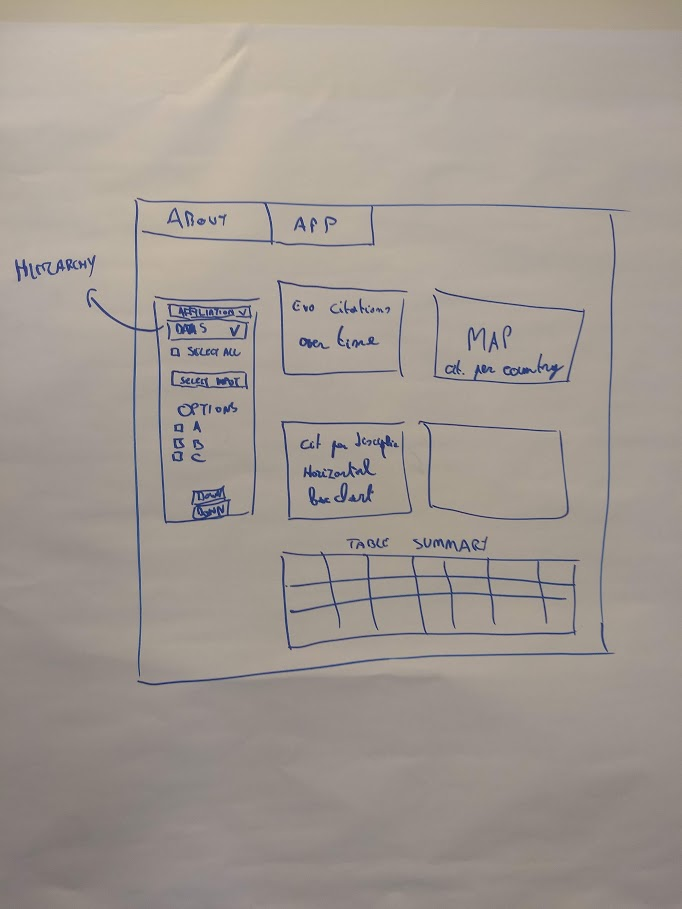 ABOUT
APP
HIERARCHY
AFFILIATION V
V
SELECT ALL
SELECT
OPTIONS
A
B
C
DOWN
DOWN
Evo citations
over time
MAP
cit. per country
Cit per
Horizontal
Bar chart
TABLE SUMMARY